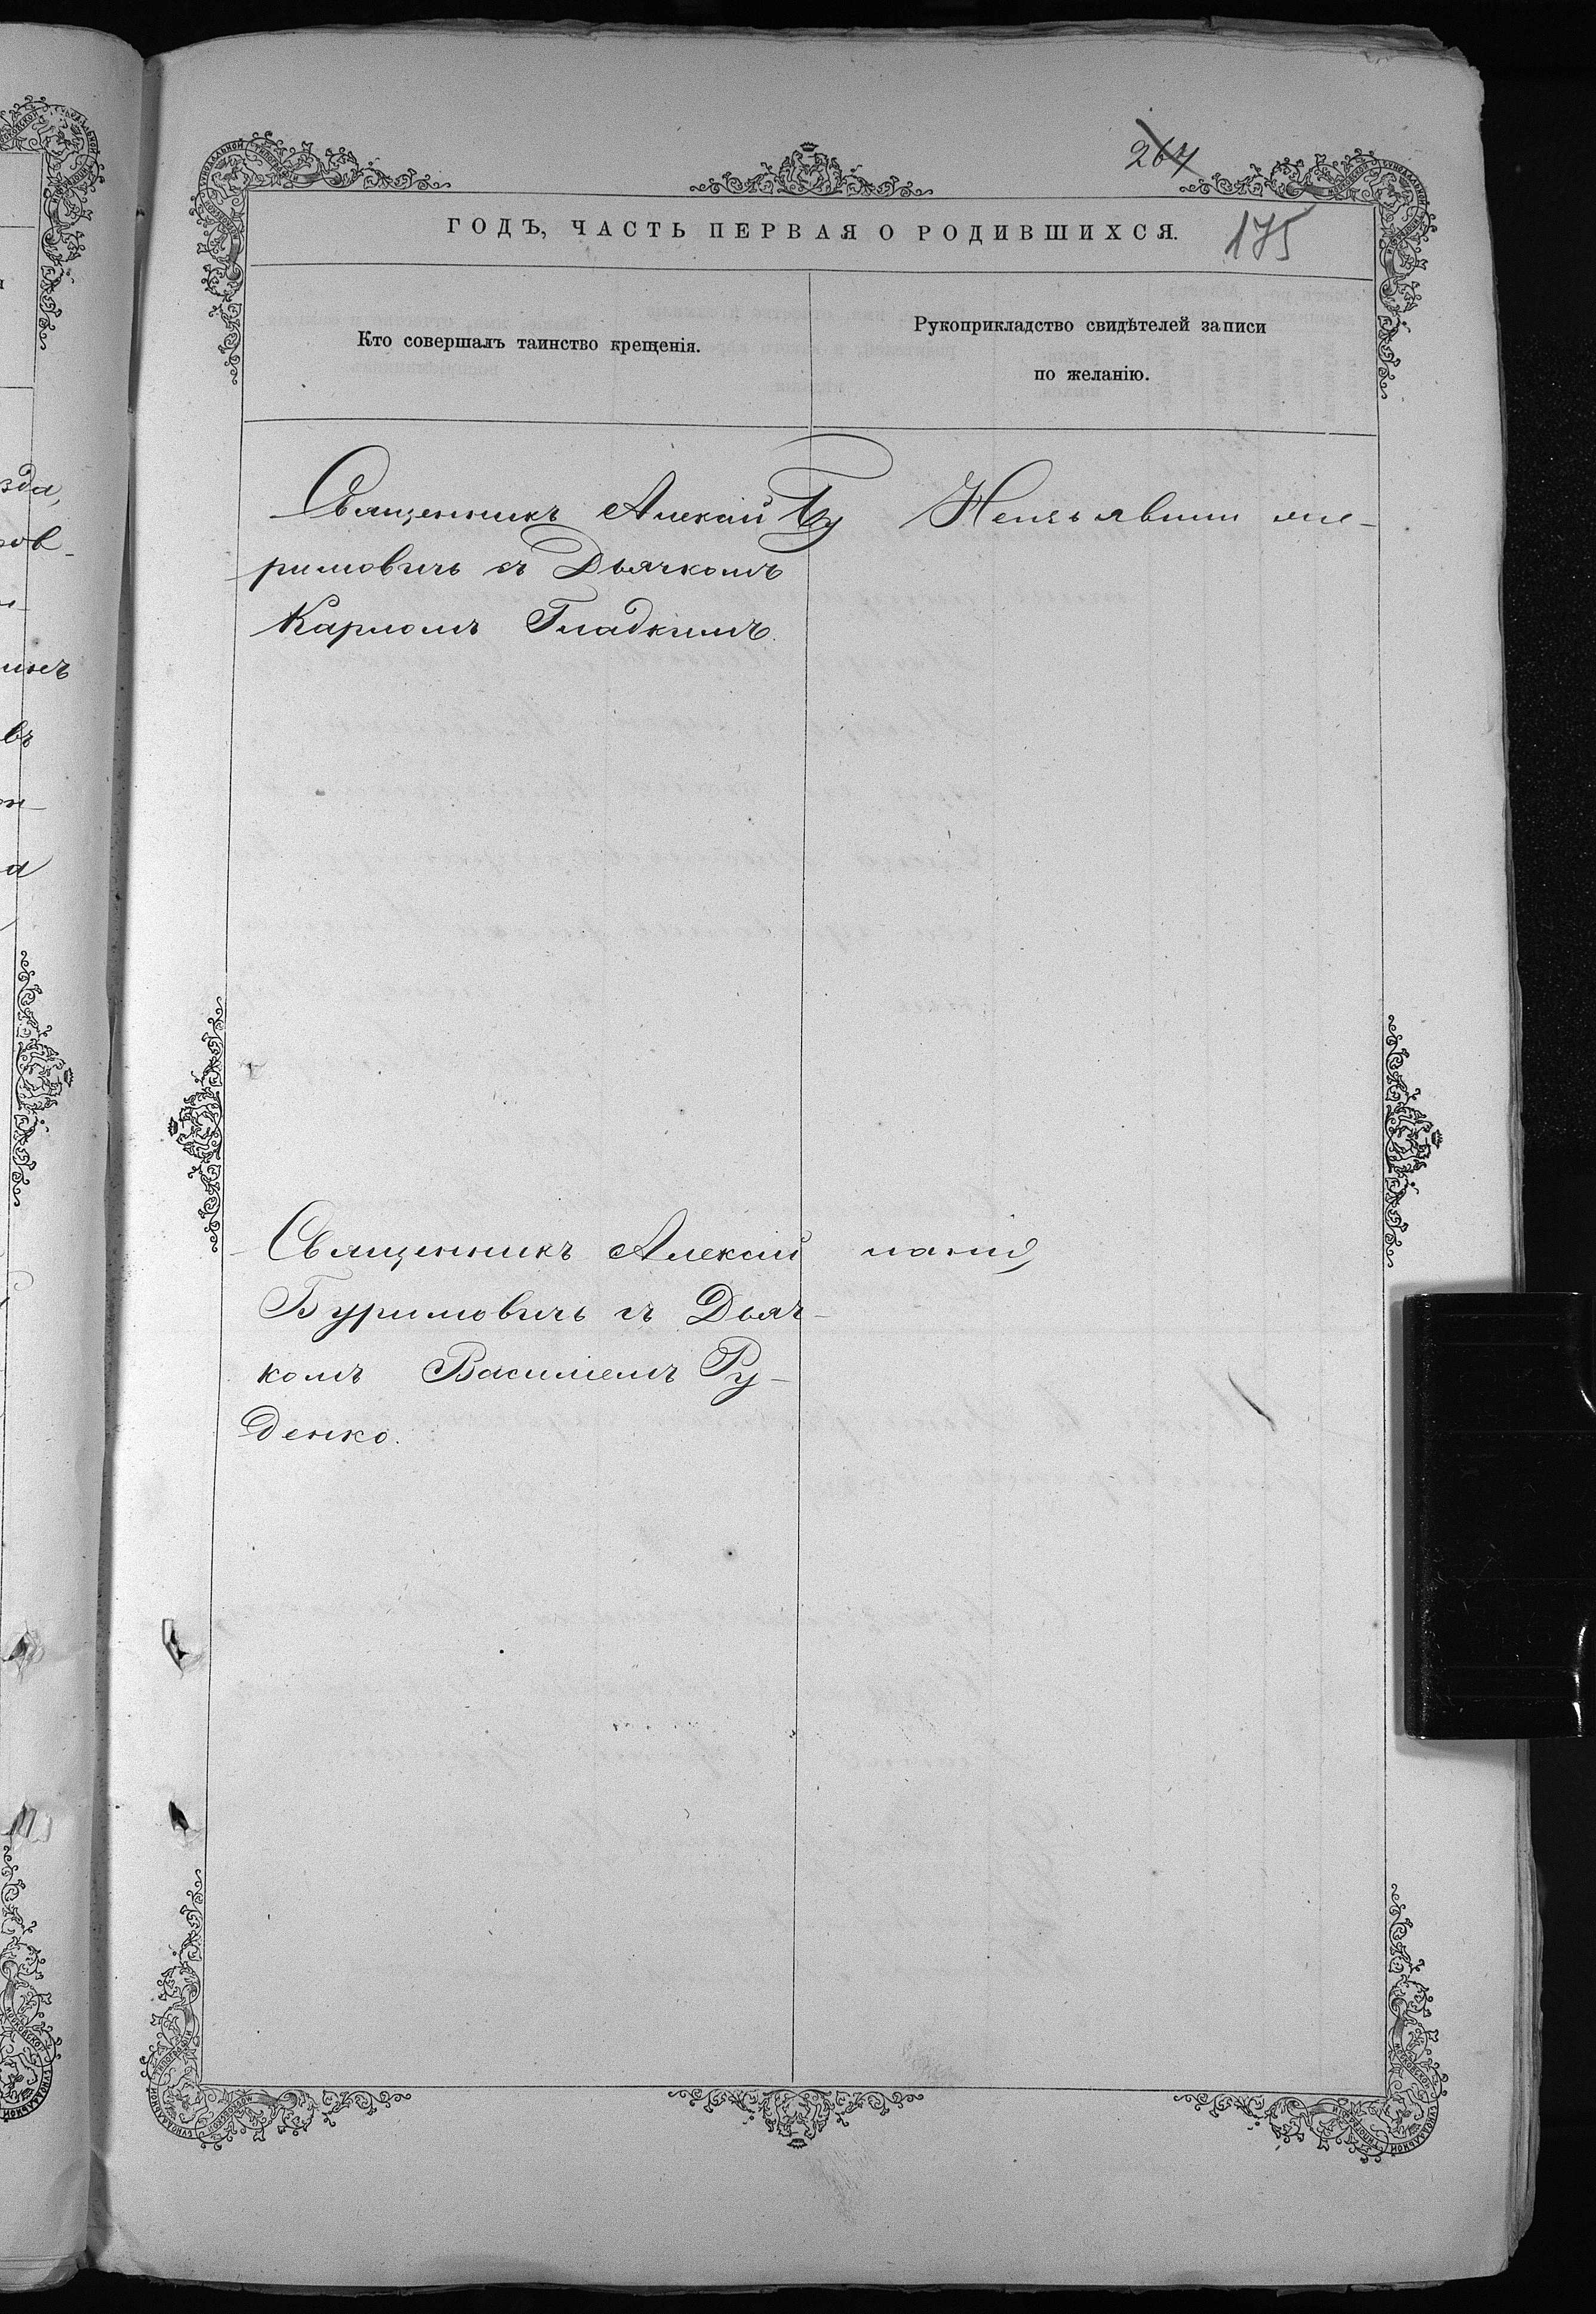 264
ГОДЪ, ЧАСТЬ ПЕРВАЯ О РОДИВШИХСЯ.
175
Кто совершалъ таинство крещенія.
Рукоприкладство свидѣтелей записи
по желанію.
Священникъ Алексій Бу
римовичъ съ Дьячкомъ
Карпомъ Гладкимъ.
Неизъявили же-
Священникъ Алексій
Буримовичъ съ Дьяч-
комъ Василіемъ Ру-
денко.
ланія